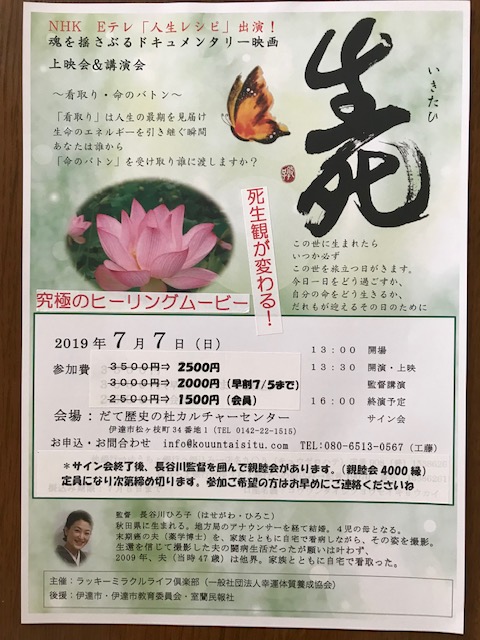 NHK Eテレ「人生レシピ」出演！
魂を揺さぶるドキュメンタリー映画
上映会&講演会
～看取り・命のバトン～
「看取り」は人生の最期を見届け
生命のエネルギーを引き継ぐ瞬間
あなたは誰から
「命のバトン」を受け取り誰に渡しますか？
いきたひ
生死
この世に生まれたら
いつか必ず
この世を旅立つ日がきます。
今日一日をどう過ごすか、
自分の命をどう生きるか、
だれもが迎えるその日のために
死生観が変わる！
究極のヒーリングムービー
2019年7月7日（日）
参加費 3500円⇒ 2500円
3000円⇒ 2000円（早割7/5まで）
2500円⇒ 1500円（会員）
13：00 開場
13：30 開演・上映
監督講演
16：00 終演予定
サイン会
会場：だて歴史の杜カルチャーセンター
伊達市松ヶ枝町34番地1（TEL 0142-22-1515）
お申込・お問合わせ info@kouuntaisitu.com TEL:080-6513-0567（工藤）
＊サイン会終了後、長谷川監督を囲んで親睦会があります。（親睦会4000縁）
定員になり次第締め切ります。参加ご希望の方はお早めにご連絡くださいね
監督 長谷川ひろ子（はせがわ・ひろこ）
秋田県に生まれる。地方局のアナウンサーを経て結婚。4児の母となる。
末期癌の夫（薬学博士）を、家族とともに自宅で看病しながら、その姿を撮影。
生還を信じて撮影した夫の闘病生活だったが願いは叶わず、
2009年、夫（当時47歳）は他界。家族とともに自宅で看取った。
主催：ラッキーミラクルライフ倶楽部（一般社団法人幸運体質養成協会）
後援：伊達市・伊達市教育委員会・室蘭民報社